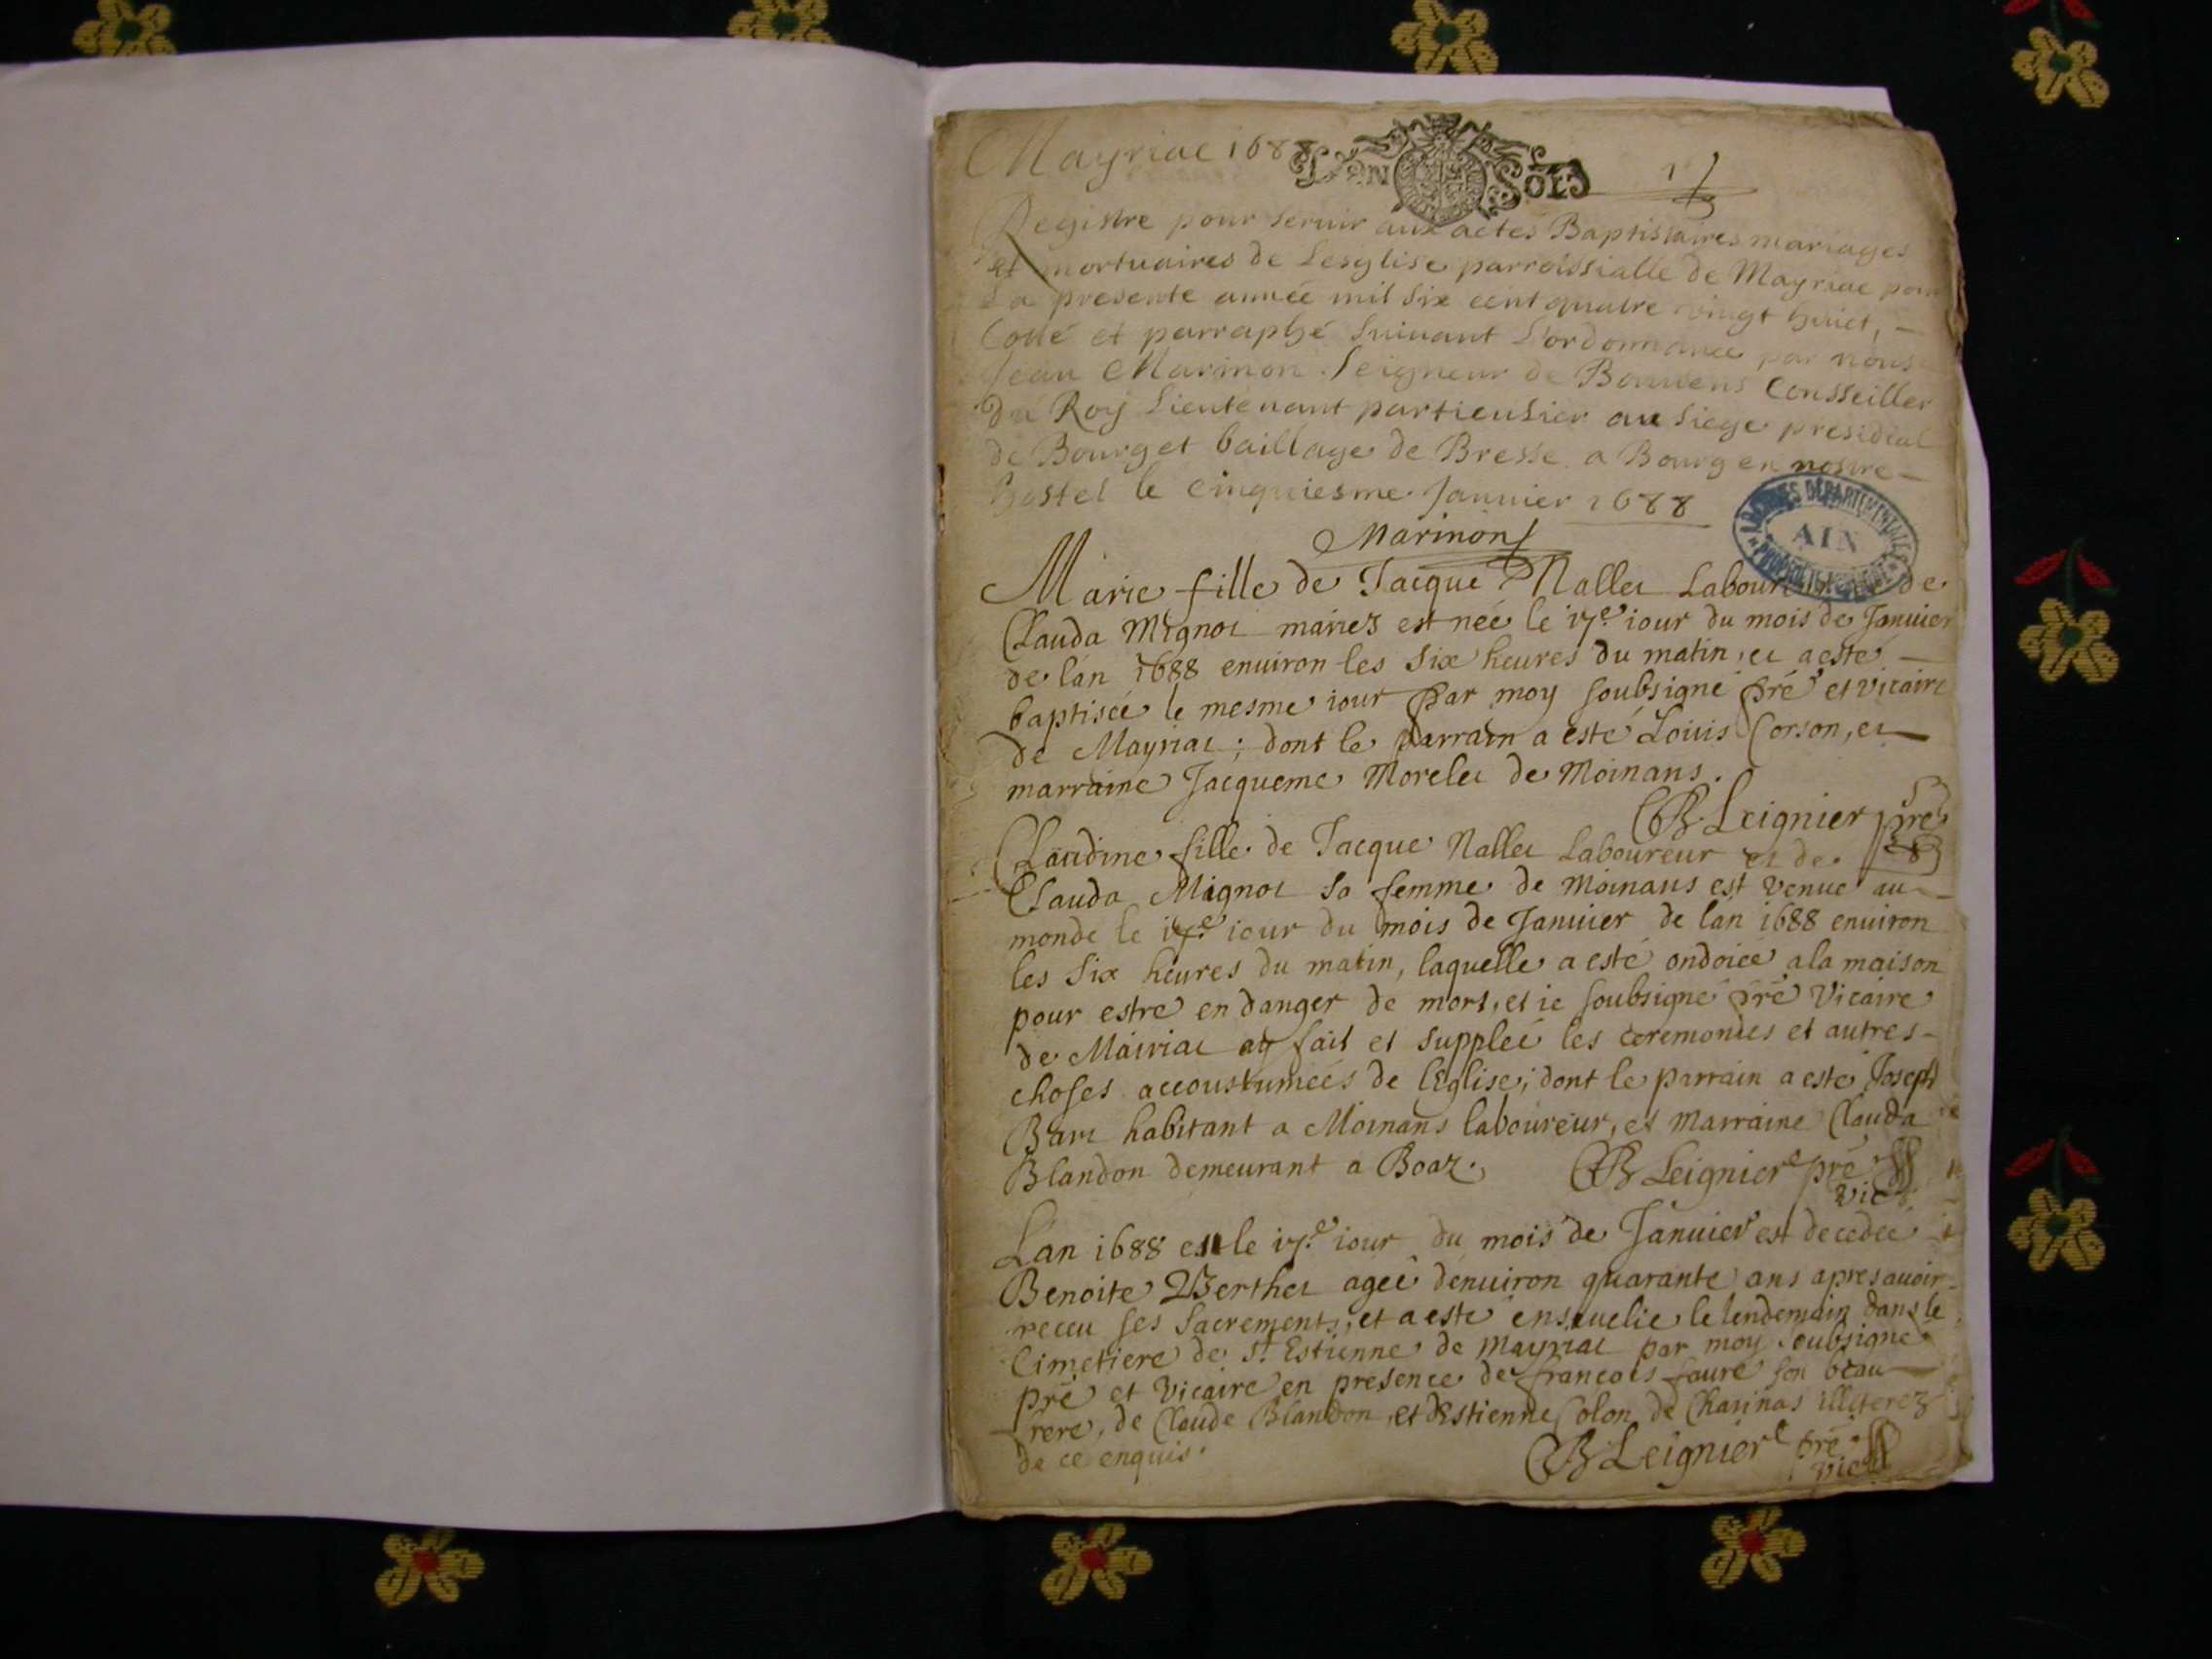 Mayriac 1688
Un Sols
1
Registre pour seruir aux actes Baptistaires mariages
et mortuaires de Lesglise parroissialle de Mayriac pour
La presente année mil six cent quatre vingt huict, —
Cotté et parraphé suiuant L'ordonnance par nous
Jean Marinon Seigneur de Bouuens Consseiller
du Roy Lieutenant particulier au siege presidial
de Bourg et baillage de Bresse a Bourg en nostre —
hostel le cinquiesme Januier 1688
Marinon
ARCHIVES DÉPARTEMENTALES
AIN
Marie fille de Jacque Nallet Laboureur de
Clauda Mignot mariez est neé le 17e iour du mois de Januier
de lan 1688 enuiron les six heures du matin, et a esté —
baptiseé le mesme iour par moy soubsigné pré et vicaire
de Mayriac; dont le parrain a esté Louis Corson, et —
marraine Jacqueme Morelet de Moinans.
CB Leignier pre
Claudine fille de Jacque Nallet Laboureur et de
Clauda Mignot sa femme de Moinans est venue au —
monde le 17e iour du mois de Januier de lan 1688 enuiron
les six heures du matin, laquelle a esté ondoieé a la maison
pour estre en danger de mort, et ie soubsigné pré Vicaire
de Mairiac ay fait et suppleé les ceremonies et autres —
choses accoustumeés de lEglise; dont le parrain a esté Joseph
habitant a Moinans laboureur, et Marraine Clauda
Blandon demeurant a Boaz.
CB Leignier pré
vic
Lan 1688 et le 17e iour du mois de Januier est decedeé
Benoite Berthet ageé denuiron quarante ans apres auoir
receu ses Sacrements, et a esté enseuelie le lendemain dans le
Cimetiere de St Estienne de Mayriac par moy soubsigné
pré et Vicaire en presence de françois faure son beau —
frere, de Claude Blandon, et dEstienne Colon de Charinas illiterez
de ce enquis.
CB Leignier pré
vic